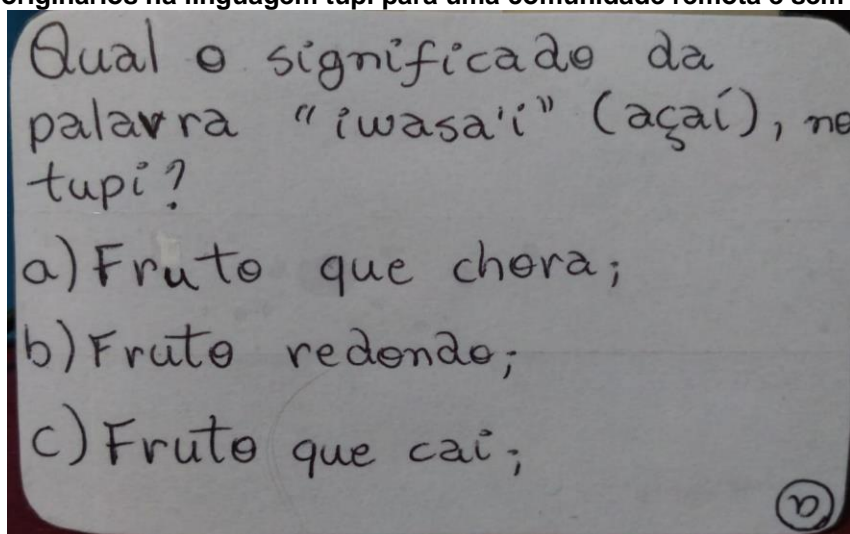 originários na linguagem tupi para uma comunidade remota e sem
Qual o significado da
palavra "iwasa'i" (açaí), no
tupi?
a) Fruto que chora;
b) Fruto redondo;
c) Fruto que cai;